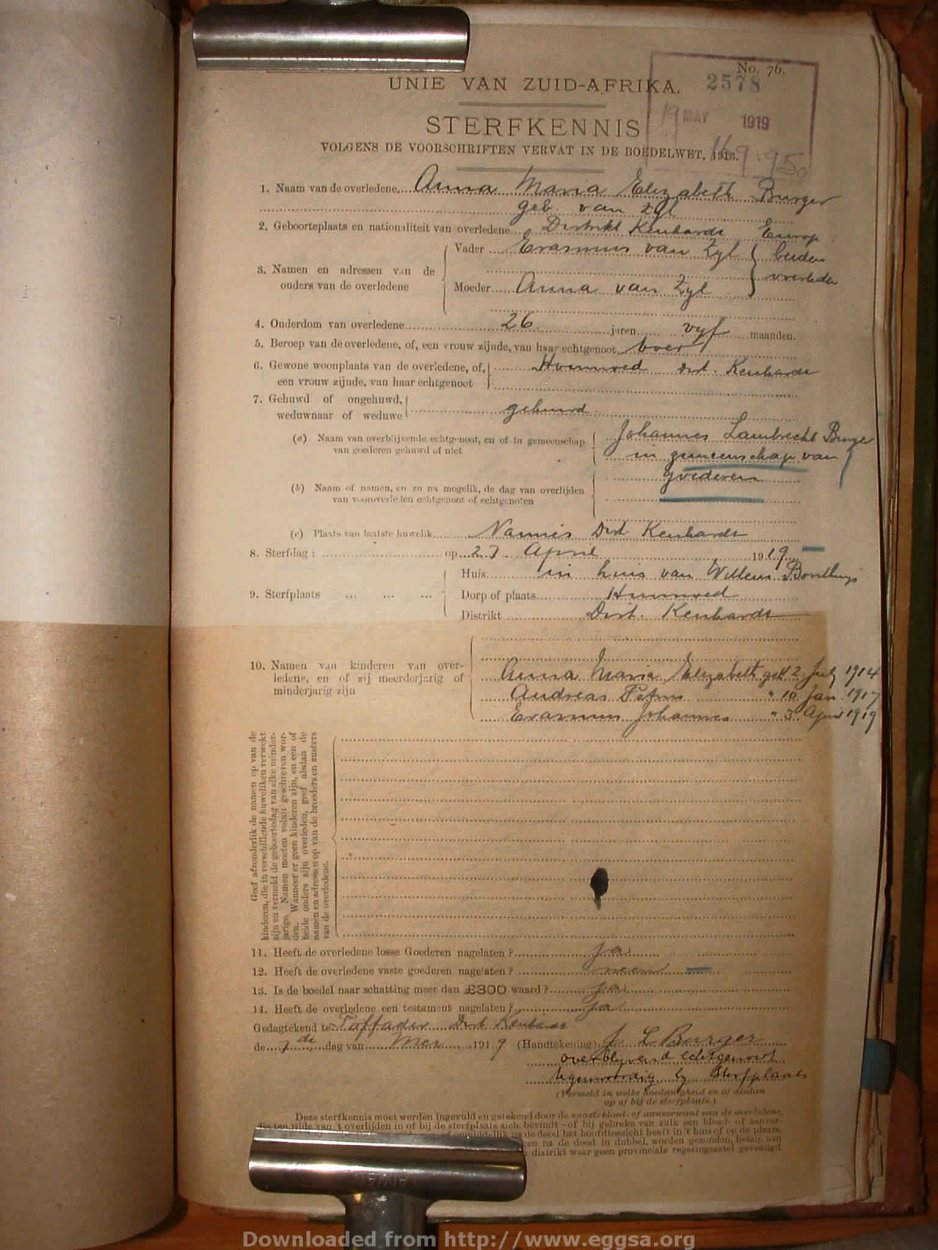 No. 76.
2578
UNIE VAN ZUID-AFRIKA.
19 MAY 1919
STERFKENNIS
VOLGENS DE VOORSCHRIFTEN VERVAT IN DE BOEDELWET, 1913.
1. Naam van de overledene... Anna Maria Elizabeth Burger
geb. van Zyl
2. Geboorteplaats en nationaliteit van overledene... Distrikt Kenhardt Europ
3. Namen en adressen van de ouders van de overledene
Vader Erasmus van Zyl
Moeder Anna van Zyl
beiden overleden
4. Ouderdom van overledene 26 jaren vyf maanden.
5. Beroep van de overledene, of, een vrouw zijnde, van haar echtgenoot boer
6. Gewone woonplaats van de overledene, of, een vrouw zijnde, van haar echtgenoot
Dist. Kenhardt
7. Gehuwd of ongehuwd, weduwnaar of weduwe gehuwd
(a) Naam van overblijvende echtgenoot, en of in gemeenschap van goederen gehuwd of niet
Johannes Lambrecht Burger
in gemeenschap van
goederen
(b) Naam of namen, en zo na mogelik, de dag van overlijden van vooroverleden echtgenoot of echtgenoten
(c) Plaats van laatste huwelik Nannies Dist Kenhardt
8. Sterfdag: op 27 April 1919
9. Sterfplaats
Huis in huis van Willem
Dorp of plaats
Distrikt Dist. Kenhardt
10. Namen van kinderen van overledene, en of zij meerderjarig of minderjarig zijn
Anna Maria Elizabeth geb 2 July 1914
Andreas Petrus " 10 Jan. 1917
Erasmus Johannes " 3 April 1919
Geef afzonderlik de namen op van de
kinderen, die in verschillende huweliken verwekt
zijn en vermeld de geboortedag van elke minder-
jarige. Namen moeten voluit geschreven wor-
den. Wanneer er geen kinderen zijn, en een of
beide ouders zijn overleden, geef alsdan de
namen en adressen op van de broeders en zusters
van de overledene.
11. Heeft de overledene losse Goederen nagelaten? ja
12. Heeft de overledene vaste goederen nagelaten? neen
13. Is de boedel naar schatting meer dan £300 waard? ja
14. Heeft de overledene een testament nagelaten? ja
Gedagtekend te Dist Kenhardt
de 7de dag van Mei 1919 (Handtekening) J. L. Burger
overblyvend echtgenoot
tegenwoordig by Sterfplaats
(Vermeld in welke hoedanigheid en of alsdan
op of bij de sterfplaats.)
Deze sterfkennis moet worden ingevuld en getekend door de naaste bloed- of aanverwant van de overledene,
die ten tijde van 't overlijden in of bij de sterfplaats zich bevindt—of bij gebreke van zulk een bloed- of aanver-
onmiddellik na de dood het hoofdtoezicht heeft in 't huis of op de plaats,
na de dood, in dubbel, worden gezonden, hetzij aan
distrikt waar geen provinciale regeringszetel gevestigd
Downloaded from http://www.eggsa.org